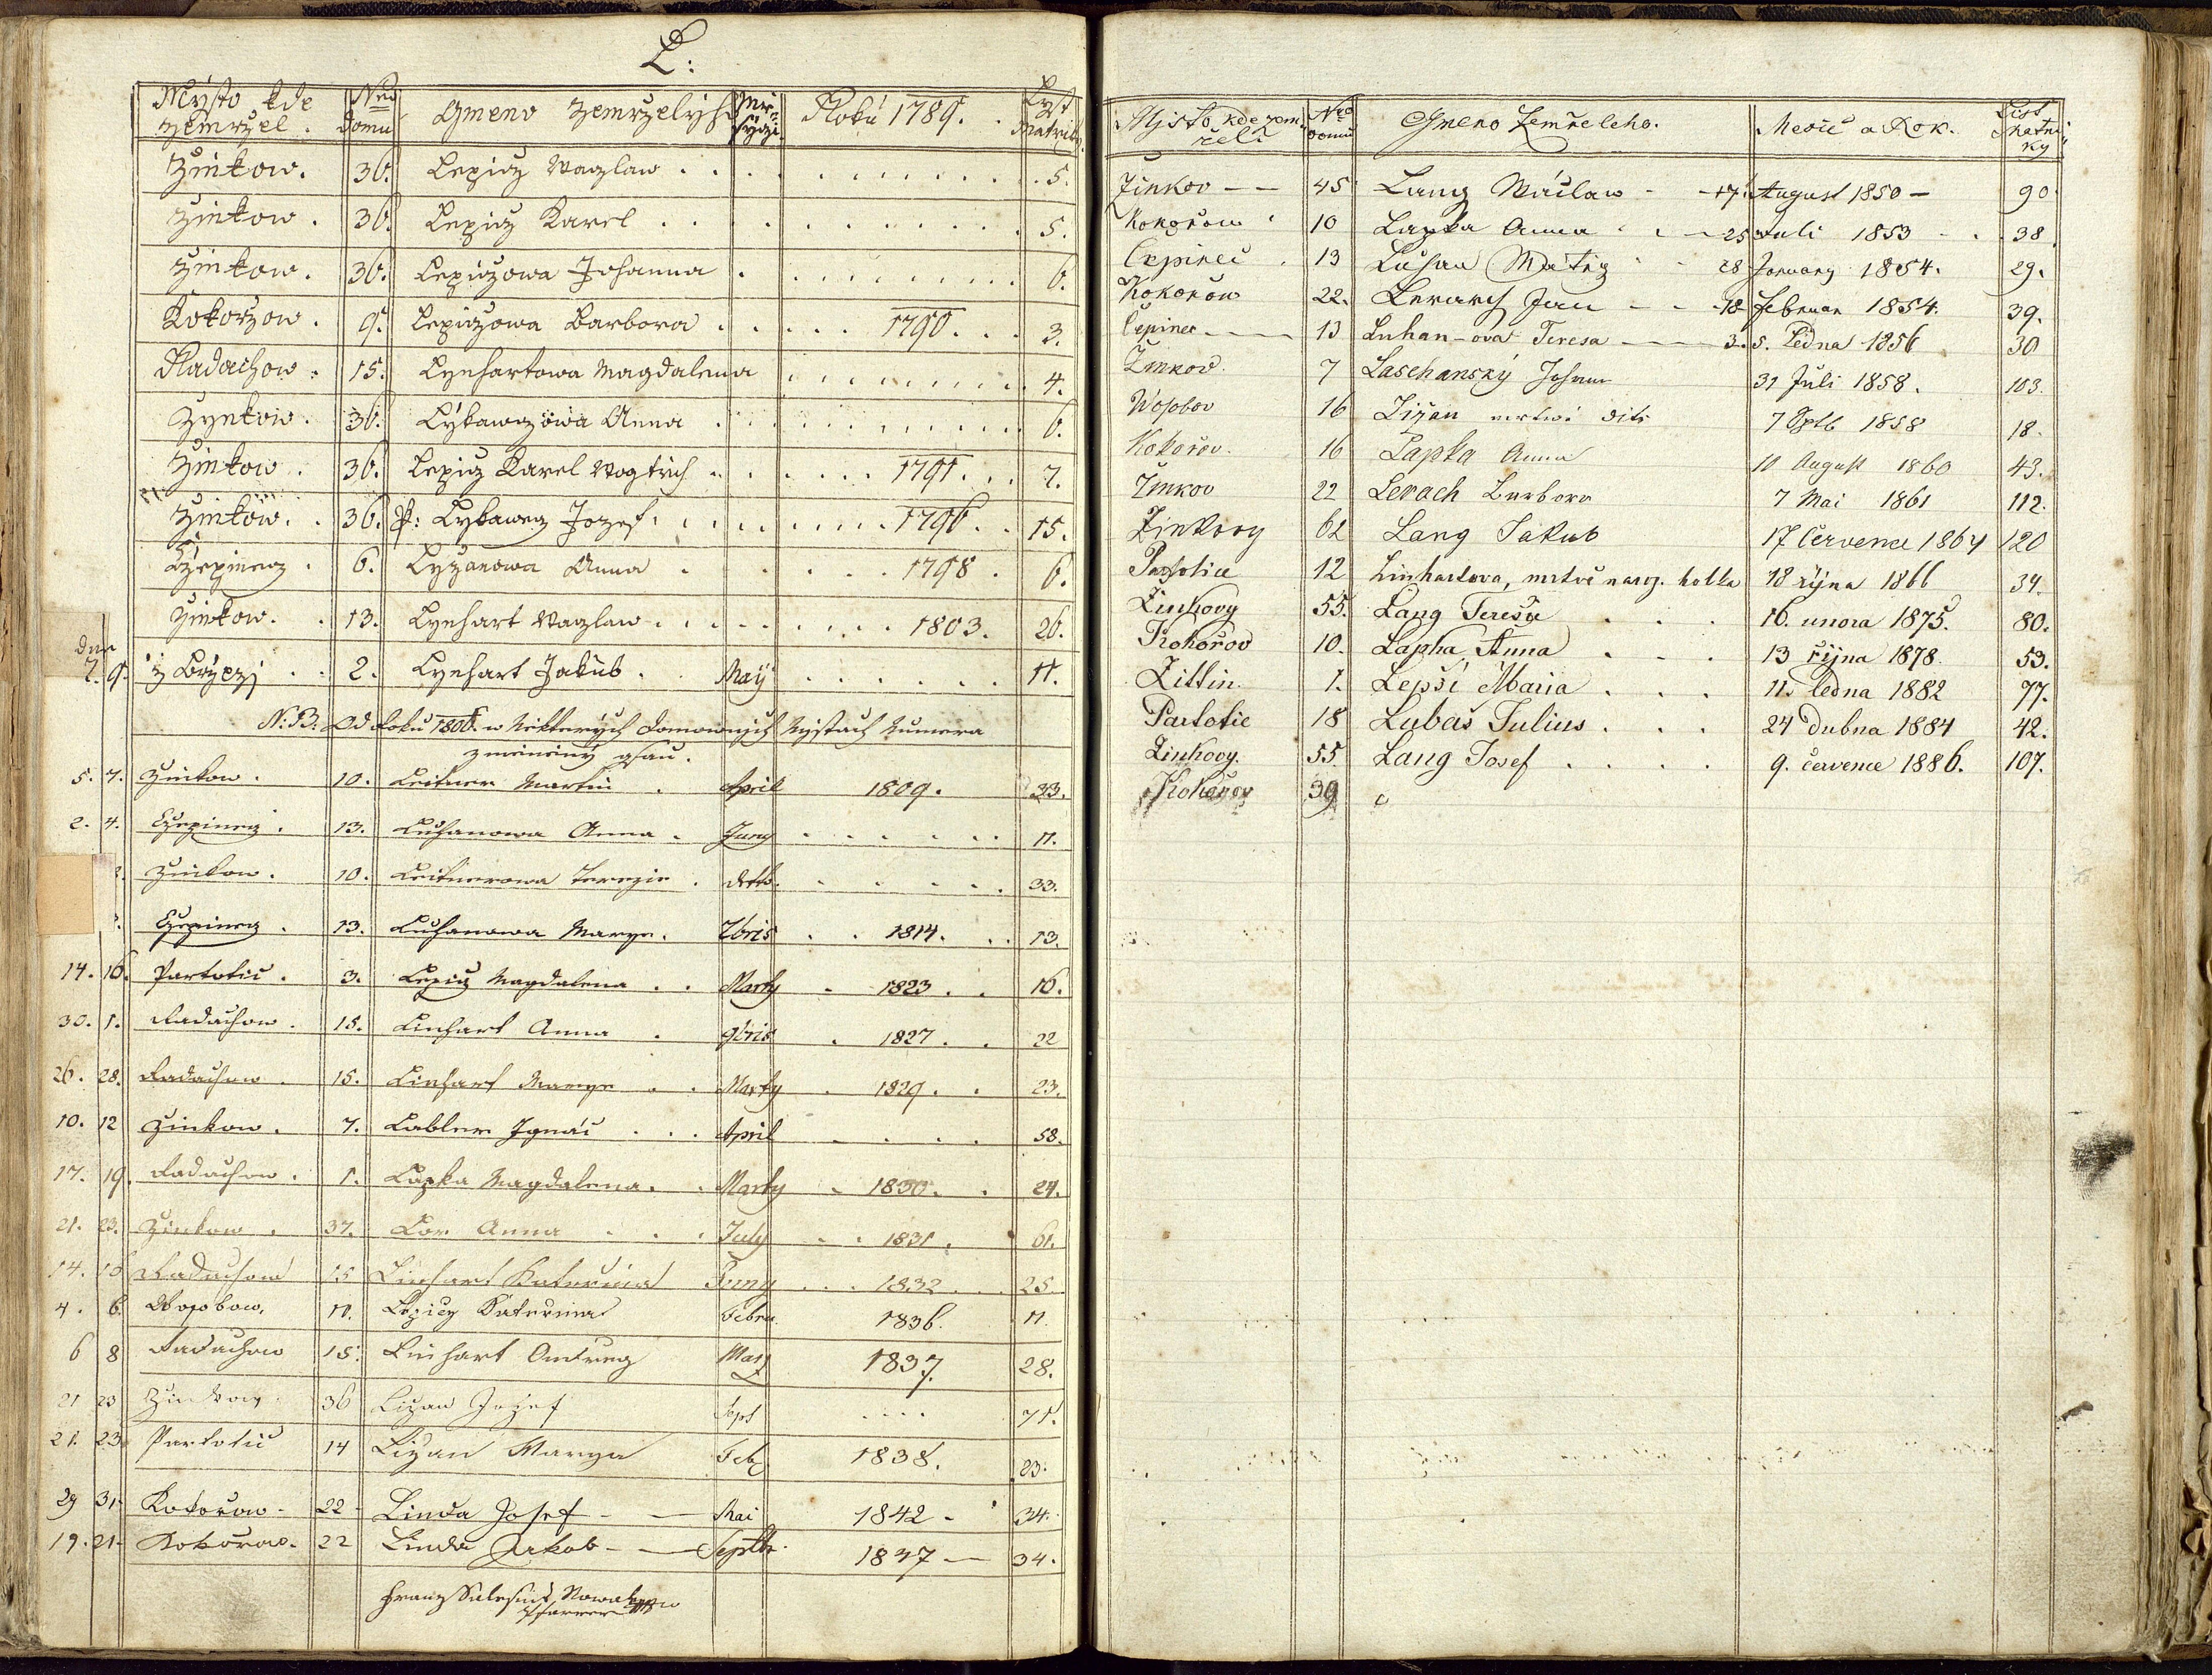 L:
Mÿsto kde zemrzel. Nro domu Gmeno zemrzelých Mě- sýczi. Roku 1789. Lyst Matriky.
Zinkow. 36. Lepicz Waczlaw 5.
Zinkow. 36. Lepicz Karel 5.
Zinkow. 36. Lepiczowa Johanna 6.
Kokorzow. 9. Lepiczowa Barbora 1790. 3.
Radachow. 15. Lynhartowa Magdalena 4.
Zynkow. 36. Lýkawczowa Anna 6.
Zinkow. 36. Lepicz Karel Wogtich 1791. 7.
Zinkow. 36. P: Lykawecz Jozef. 1796. 15.
Czepinecz. 6. Lyzanowa Anna 1798. 6.
Zinkow. 13. Lynhart Waczlaw 1803. 26.
dne
7. 9. 2. Lynhart Jakub. Maÿ 11.
N: B: Od Roku 1806. w Niekterých Domowných Mýstach Numera
zmeninÿ gsau.
5. 7. Zinkow. 10. Leitner Martin April 1809. 33.
2. 4. Czepinecz. 13. Luhanowa Anna. Juny 11.
Zinkow. 10. Leitnerowa Terezie. detto. 33.
Czepinecz. 13. Luhanowa Marye. 7bris 1814. 13.
14. 16. Partotic. 3. Lepicz Magdalena Marty 1823. 16.
30. 1. Radachow. 15. Linhart Anna 9bris 1827. 22
26. 28. Radachow. 15. Linhart Marye Marty 1829. 23.
10. 12 Zinkow. 7. Labler Ignác April 58.
17. 19. Radachow. 1. Lapka Magdalena. Marty 1830. 24.
21. 23. Zinkow. 37. Lor Anna July 1831. 61.
14. 15 Radachow 15 Linhart Katerina Juny 1832 25
4. 6. Wosobow. 11. Lepicz Katerina Febru. 1836. 11.
6 8 Radachow 15. Linhart Ondreg 1837. 28.
21 23 Zinkow 36 Lizan Jozef Sept 71.
21. 23. Partotic 14 Lizan Marya Feb. 1838. 23.
29 31. Kokorow - 22 - Linda Josef - Mai 1842 - 34.
19. 21. Kokorow. 22 Linda Jakob - Septbr. 1847 - 34.
Franz Salesius Nowak
Pfarrer
Mjsto, kde zem- řeli Nro domu Gmeno Zemřeleho. Mesic a Rok. List Matri- ky
Zinkov - - 45 Lang Wáclaw - 17. August 1850 - 90
Kokořow 10 Lapka Anna - 25 Juli 1853 38
Cepinec 13 Luhan Matěg 28 January 1854. 29.
Kokořow 22. Lerach Jan - 18 Februar 1854. 39.
Cepinec - 13 Luhan-ova Teresa - 3. 5. Ledna 1856 30
Zinkov. 7 Laschanský Johann 31 Juli 1858. 103.
Wosobov 16 Lizan mrtwé dite 7 Sptb 1858 18.
Kokořov. 16 Lapka Anna 10 August 1860 43.
Zinkov 22 Lerach Barbora 7 Mai 1861 112.
Zinkovy 62 Lang Jakub 17 Července 1864 120
Partotice 12 Linhartova, mrtvě naroz. holka 18 října 1866 34.
Zinkovy 55. Lang Teresie 16. unora 1875. 80.
Kokořov 10. Lapka Anna 13 října 1878. 53.
Zittin. 1. Lepší Maria 11. ledna 1882 77.
Partotic 18 Lubas Julius 24 dubna 1884 42.
Zinkovy. 55 Lang Josef 9. července 1886. 107.
Kokořov 39